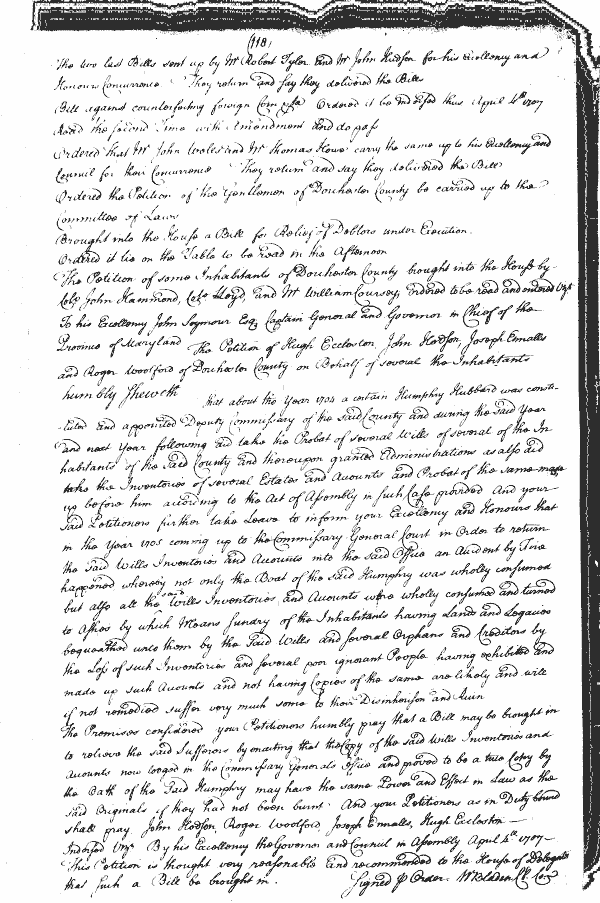 (118)
The two last Bills sent up by Mr Robert Tyler and Mr John Hudson for his Excellency and
Honours Concurrence They return and say they delivered the Bills
Bill against counterfeiting foreign Coin &c Ordered it be Endorsed thus April 4th 1707
Read the second time with amendment and do pass
Ordered that Mr John Wales and Mr Thomas Howe carry the same up to his Excellency and
Council for their Concurrence They return and say they delivered the Bill
Ordered the Petition of the Gentlemen of Dorchester County be carried up to the
Committee of Laws
Brought into the House a Bill for Relief of Debtors under Execution
Ordered it lie on the Table to be read in the Afternoon
The Petition of some Inhabitants of Dorchester County brought into the House by
Colo John Hammond, Colo Lloyd, and Mr William Coursey, ordered to be read and entered Vizt
To his Excellency John Seymour Esq Captain General and Governor in Chief of the
Province of Maryland The Petition of Hugh Eccleston, John Hodson, Joseph Ennalls
and Roger Woolford of Dorchester County on Behalf of several the Inhabitants
humbly Sheweth that about the Year 1704 a certain Humphry Hubbard was consti-
-tuted and appointed Deputy Commissary of the said County and during the said Year
and next Year following did take the Probat of several Wills of several of the In
habitants of the said County and thereupon granted Administrations as also did
take the Inventories of several Estates and Accounts and Probat of the same made
up before him according to the Act of Assembly in such Case provided And your
said Petitioners further take Leave to inform your Excellency and Honours that
in the Year 1705 coming up to the Commissary General Court in Order to return
the said Wills Inventories and Accounts into the said Office an Accident by Fire
happened whereby not only the Boat of the said Humphry was wholly consumed
but also all the said Wills Inventories and Accounts were wholly consumed and turned
to Ashes by which Means sundry of the Inhabitants having Lands and Legacies
bequeathed unto them by the said Wills and several Orphans and Creditors by
the Loss of such Inventories and several poor ignorant People having exhibited and
made up such Accounts and not having Copies of the same are likely and will
if not remedied suffer very much some to their Disinherison and Ruin
The Premises considered your Petitioners humbly pray that a Bill may be brought in
to relieve the said Sufferers by enacting that the Copy of the said Wills Inventories and
Accounts now lodged in the Commissary Generals Office and proved to be a true Copy by
the Oath of the said Humphry may have the same Power and Effect in Law as the
said Originals if they had not been burnt. And your Petitioners as in Duty bound
shall pray. John Hodson, Roger Woolford, Joseph Ennalls, Hugh Eccleston
Indorsed Vizt By his Excellency the Governor and Council in Assembly April 4th 1707
This Petition is thought very reasonable and recommended to the House of Delegates
that such a Bill be brought in. Signed p Order. W Bladen Cl. Con